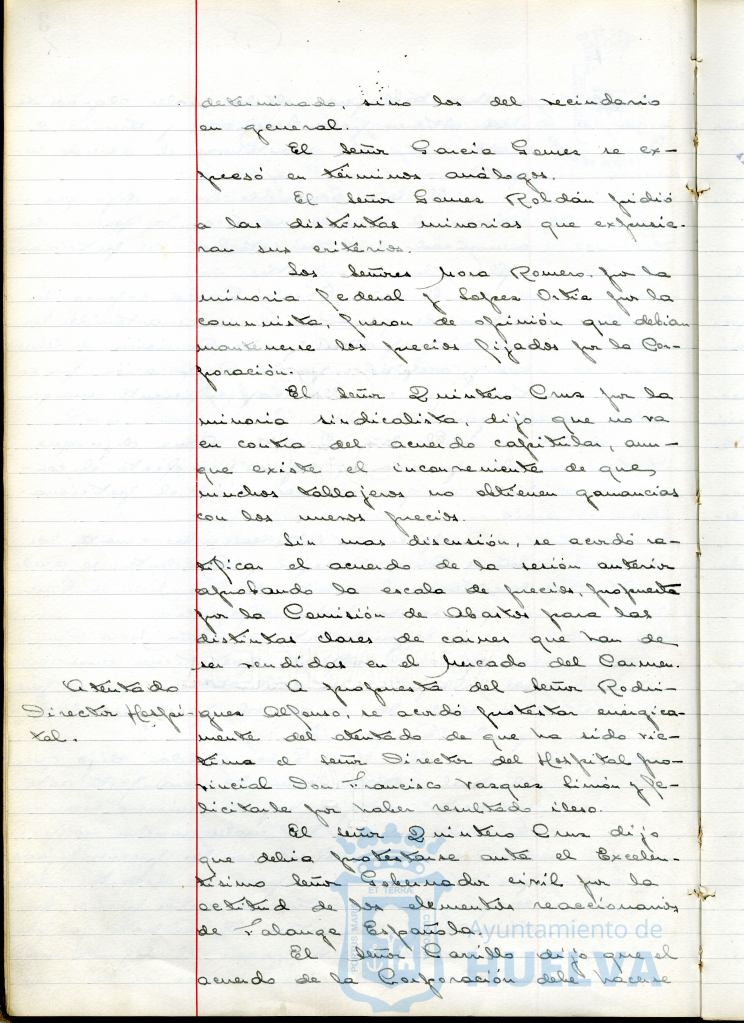 determinado, sino los del vecindario
en general.
El Señor García Gomez se ex-
presó en términos análogos.
El Señor Gomez Roldán pidió
a las distintas minorias que expusie-
ran sus criterios.
Los Señores Mora Romero por la
minoria federal y Lopez Ortiz por la
comunista, fueron de opinión que debian
mantenerse los precios fijados por la Cor-
poración.
El Señor Quintero Cruz por la
minoria sindicalista, dijo que no va
en contra del acuerdo capitular, aun-
que existe el inconveniente de que
muchos tablajeros no obtienen ganancias
con los nuevos precios.
Sin mas discusión, se acordó ra-
tificar el acuerdo de la sesión anterior
aprobando la escala de precios, propuesta
por la Comisión de Abastos para las
distintas clases de carnes que han de
ser vendidas en el Mercado del Carmen.
Atentado
Director Hospi-
tal.
A propuesta del Señor Rodri-
guez Alfonso, se acordó protestar energica-
mente del atentado de que ha sido vic-
tima el señor Director del Hospital pro-
vincial Don Francisco Vazquez Limón y fe-
licitarle por haber resultado ileso.
El señor Quintero Cruz dijo
que debia protestarse ante el Excelen-
tisimo Señor Gobernador civil por la
actitud de los elementos reaccionarios
de Falange Española.
El Señor Carrillo dijo que el
acuerdo de la Corporación debe hacerse
PORTUS MARIS
ET TERRA
CUSTODIA
Ayuntamiento de
HUELVA